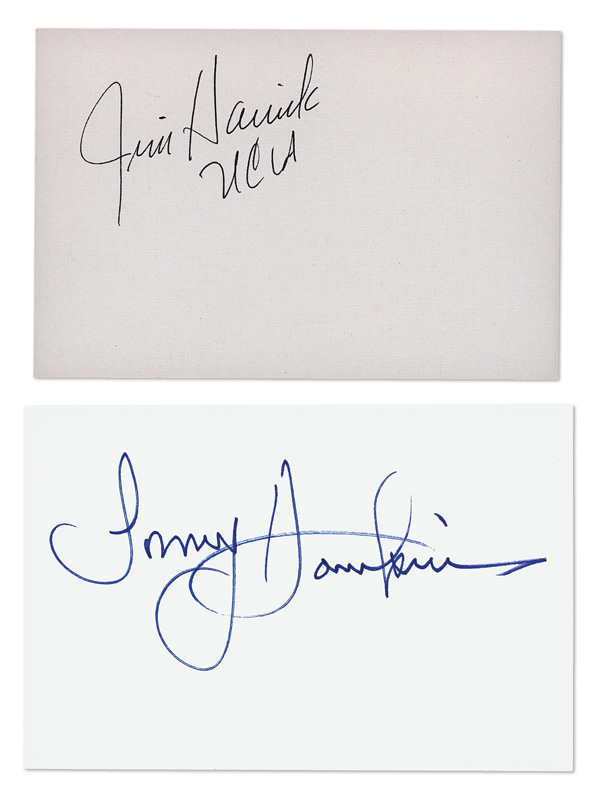 Jim Harrick
UCLA
Tommy Hawkins